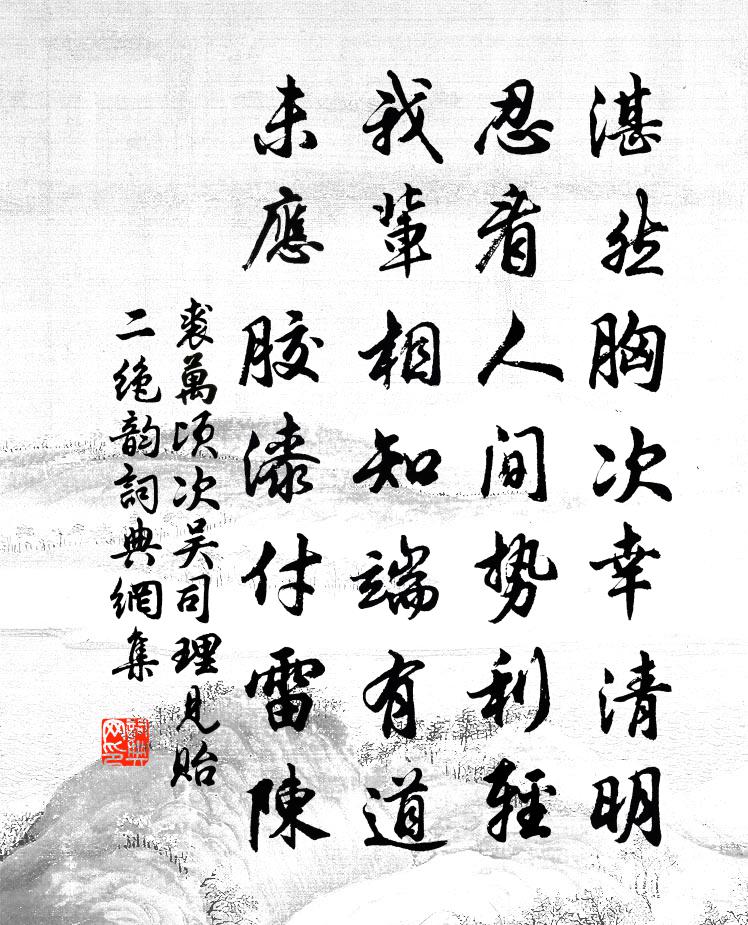 湛然胸次幸清明
忍看人間勢利輕
我輩相知端有道
未應膠漆付雷陳
裘萬頃次吳司理見貽
二絶韵詞典網集